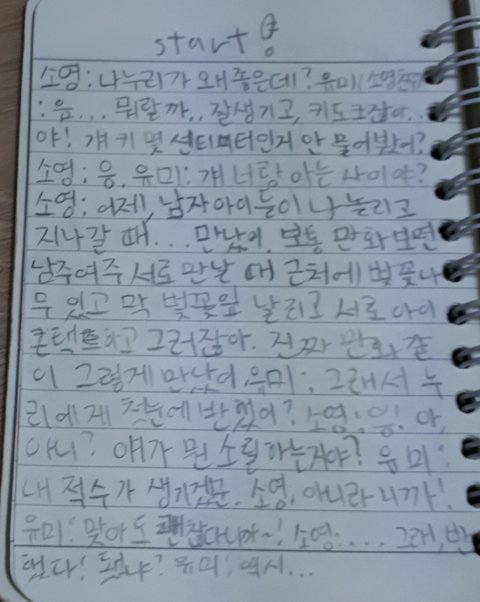 start!
소영: 나누리가 왜 좋은데? 유미(소영친구)
: 음... 뭐랄까.. 잘생기고, 키도크잖아..
야! 걔 키 몇 센티미터인지 안 물어봤어?
소영: 응. 유미: 걔 너랑 아는 사이야?
소영: 어제, 남자아이들이 나 놀리고
지나갈 때... 만났어. 보통 만화보면
남주여주 서로 만날 때 근처에 벚꽃나
무 있고 막 벚꽃잎 날리고 서로 아이
콘택트하고 그러잖아. 진짜 만화 같
이 그렇게 만났어. 유미: 그래서 누
리에게 첫눈에 반했어? 소영: 응! 아,
아니? 얘가 뭔 소릴하는거야? 유미:
내 적수가 생기겠군. 소영: 아니라니까!
유미: 맞아도 괜찮다니까~! 소영: .... 그래, 반
했다! 됐냐? 유미: 역시...